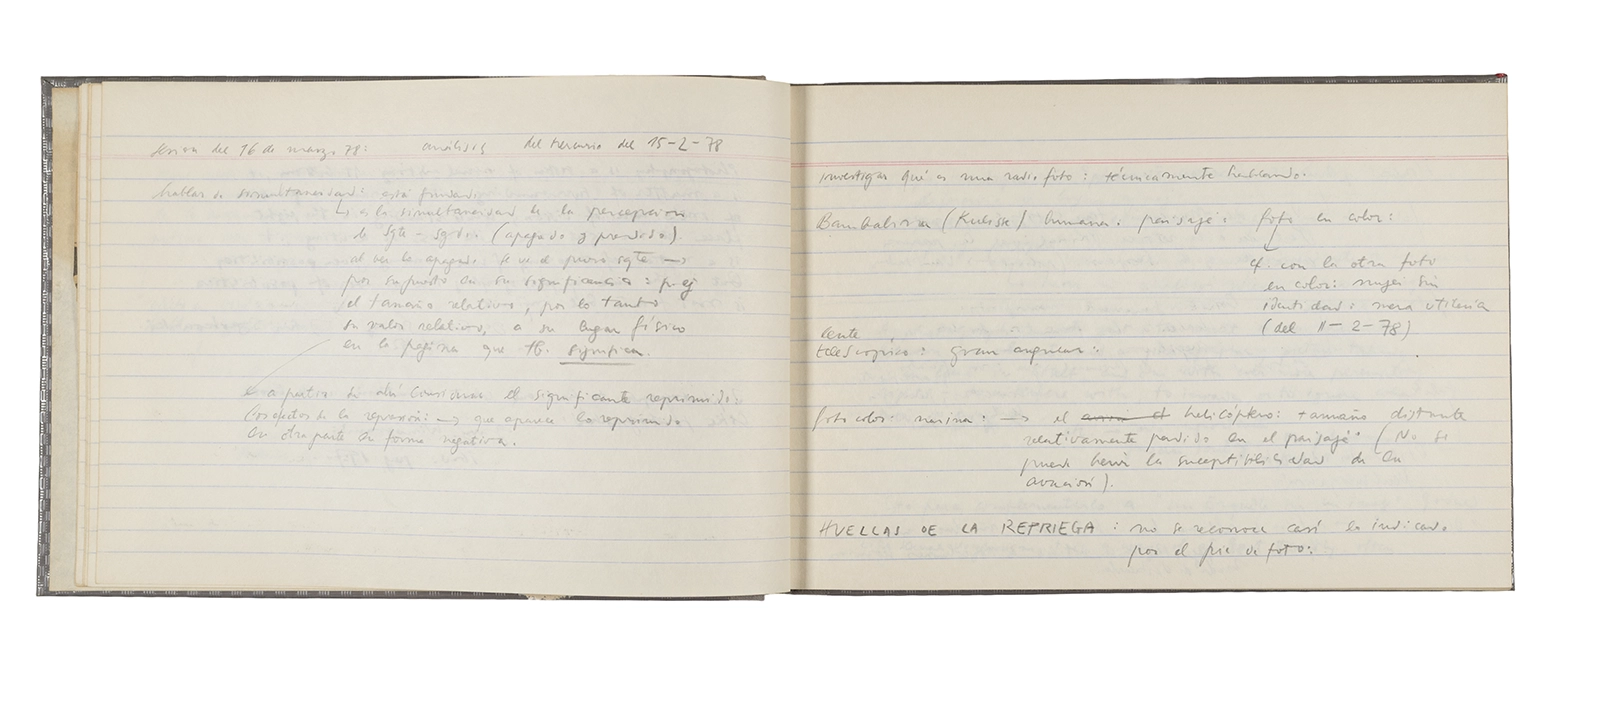 sesion del 16 de marzo 78: análisis del Mercurio del 15-2-78
hablar de simultaneidad: está fundado
↳ es la simultaneidad de la percepcion
de sgte - sgdo. (apagado y prendido).
al ver lo apagado se ve el puro sgte →
por supuesto en su significancia: p. ej
el tamaño relativo, por lo tanto
su valor relativo, a su lugar físico
en la página que tb. significa.
a partir de ahí considerar el significante reprimido:
(los efectos de la represión: → que aparece lo reprimido
en otra parte en forma negativa.
investigar qué es una radiofoto: técnicamente hablando.
Bambalina (Kulisse) humana: paisaje: foto en color:
cf. con la otra foto
en color: mujer sin
identidad: mera utilería
(del 11-2-78)
lente
telescópico: gran angular:
foto color: marina: → el helicóptero: tamaño distante
relativamente perdido en el paisaje (No se
puede herir la susceptibilidad de la
aviación).
HUELLAS DE LA REFRIEGA: no se reconoce casi lo indicado
por el pie de foto: